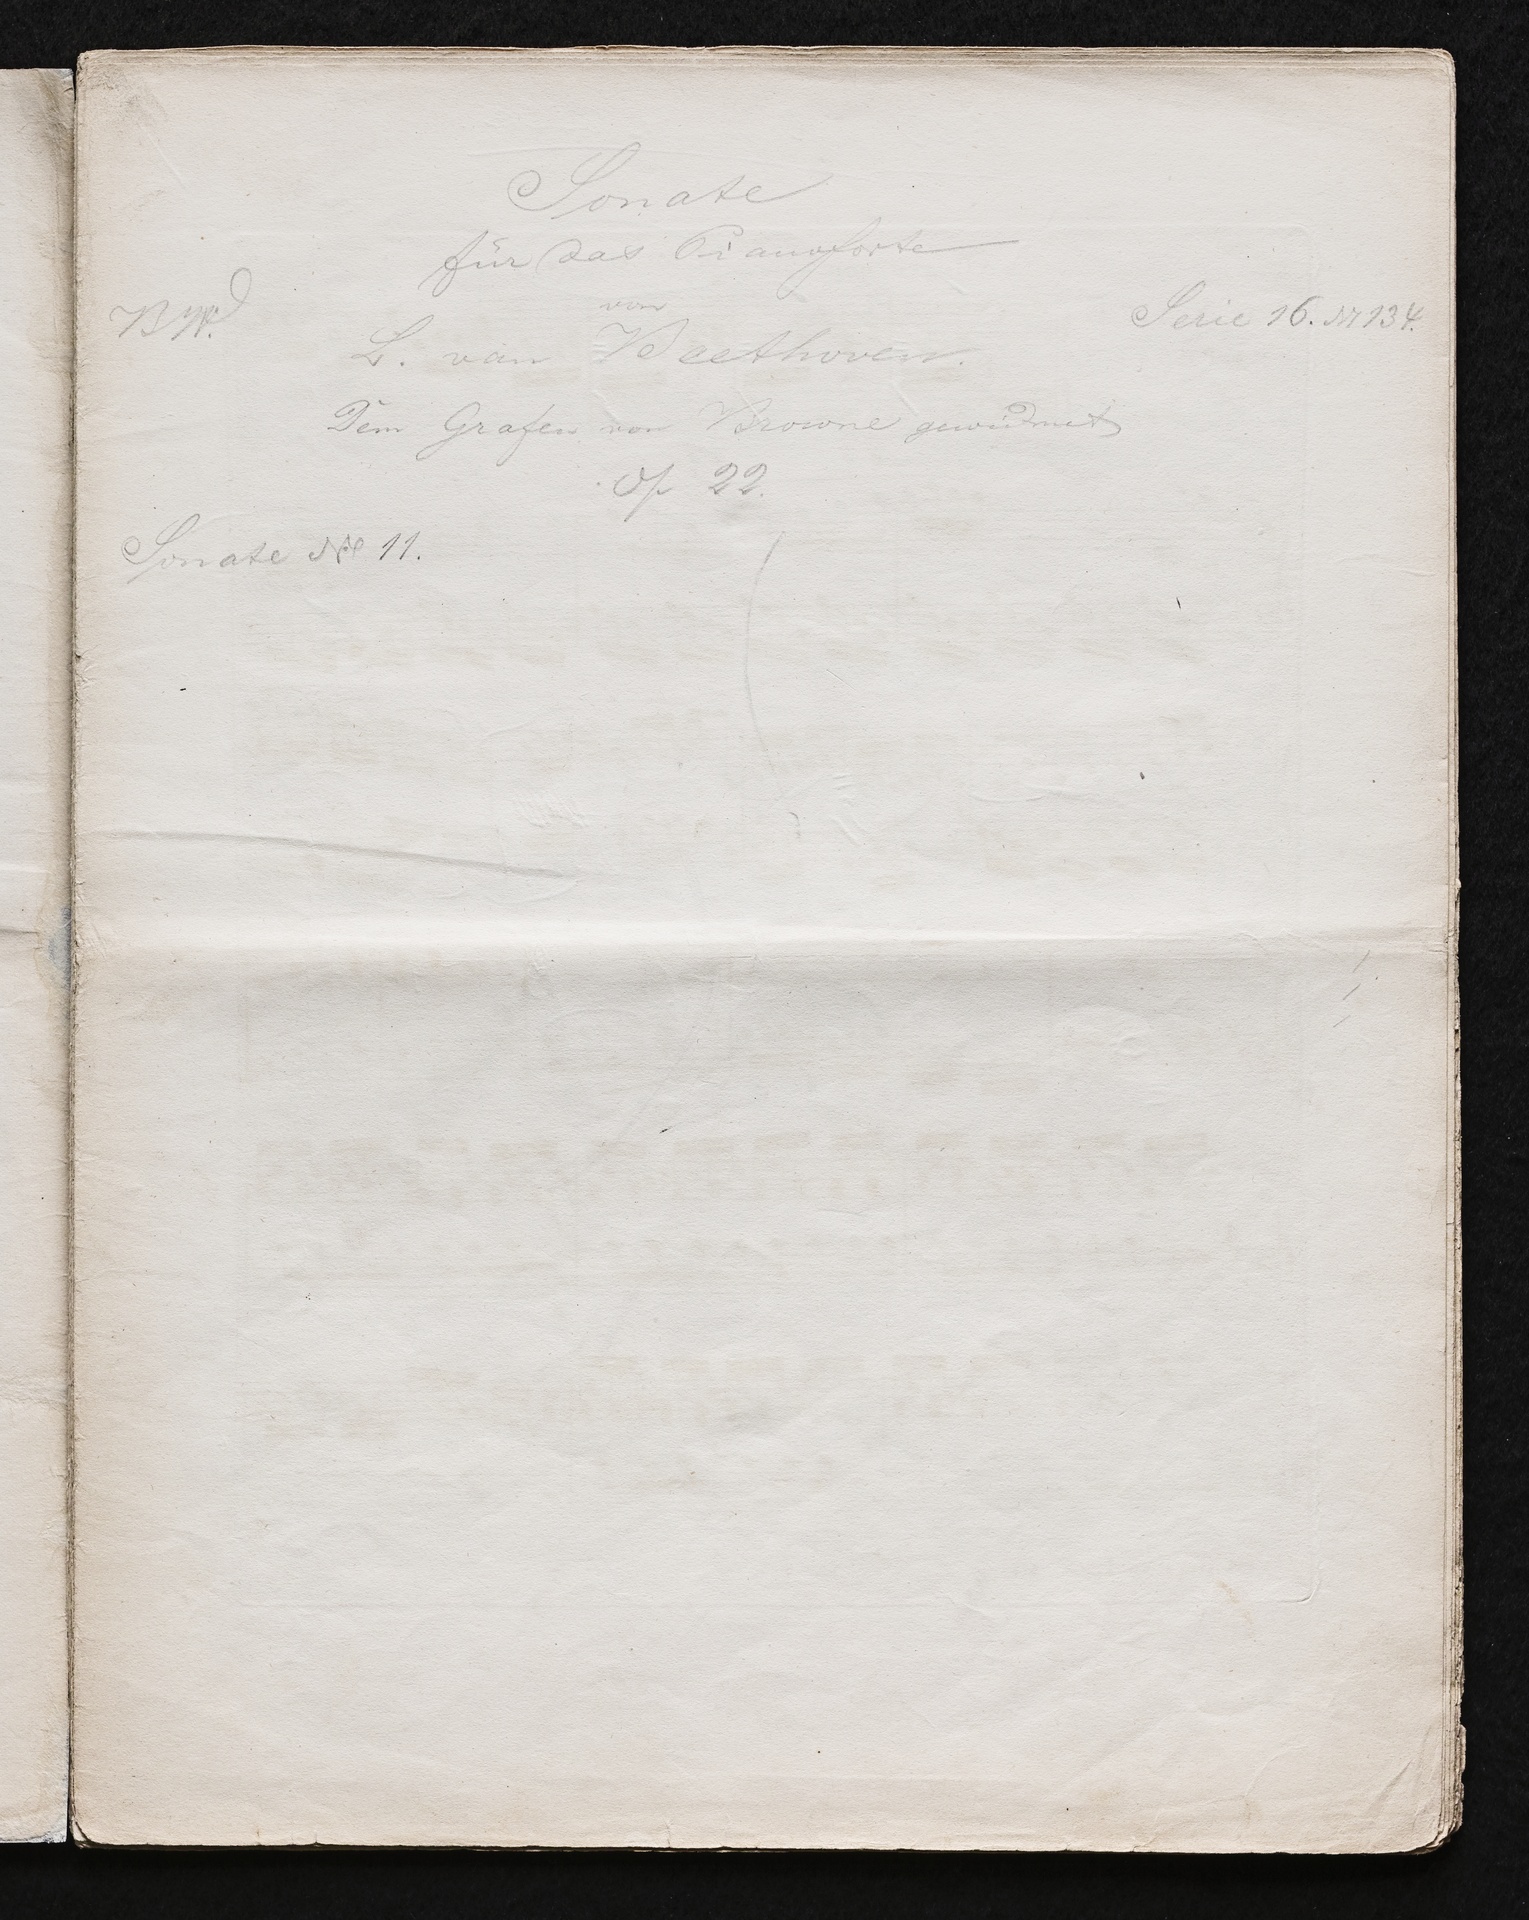 Sonate
für das Pianoforte
von
B.W. Serie 16. No 134.
L. van Beethoven.
Dem Grafen von Browne gewidmet
Op 22.
Sonate No 11.